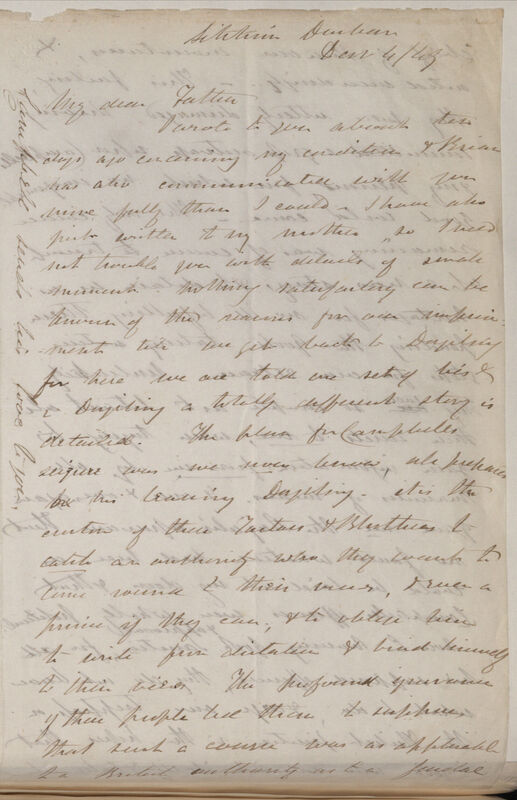 Sikkim Durbar
Decr 4/49
My dear Father
I wrote to you about ten
days ago concerning my condition & Brian
has also communicated with you
more fully than I could. I have also
just written to my mother, so I need
not trouble you with details of small
moment. Nothing satisfactory can be
known of the reasons for our imprison-
-ment till we get back to Dorjiling
for here we are told one set of lies &
a Dorjiling a totally different story is
detailed. The plan for Campbells
seizure was we now know, all prepared
on his leaving Dorjiling. it is the
custom of these Tartars & Bhotheas to
catch an authority who they want to
turn round to their views, & even a
prince if they can, & to oblige him
to write from dictation & bind himself
to their views. The profound ignorance
of these people led them to suppose
that such a course was as applicable
to a British authority as to a feudal
Campbell sends his love to you.